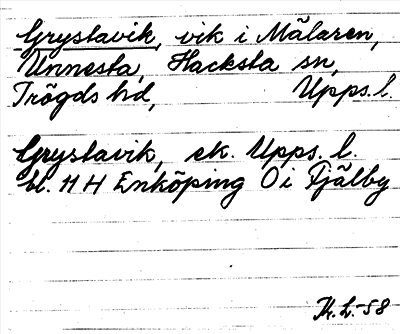 Grystavik, vik i Mälaren,
Unnesta, Hacksta sn,
Trögds hd, Upps. l.
Grystavik, ek. Upps. l.
bl. 11 H Enköping 0 i Fjälby
H. L. -58